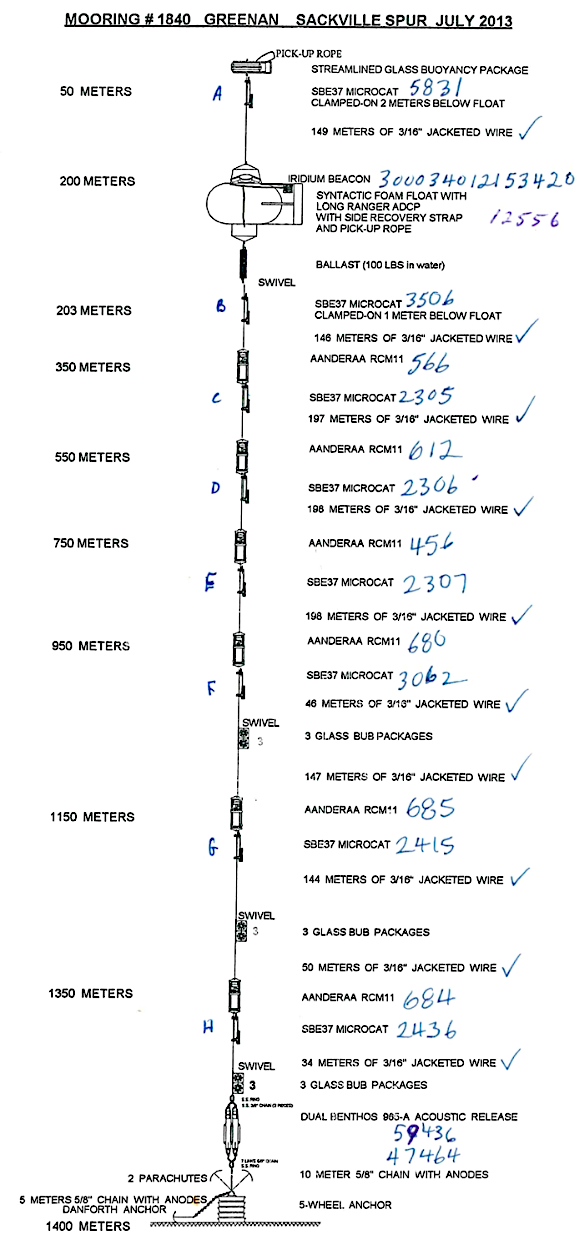 MOORING # 1840 GREENAN SACKVILLE SPUR JULY 2013
PICK-UP ROPE
STREAMLINED GLASS BUOYANCY PACKAGE
50 METERS
A
SBE37 MICROCAT 5831
CLAMPED-ON 2 METERS BELOW FLOAT
149 METERS OF 3/16" JACKETED WIRE ✓
200 METERS
IRIDIUM BEACON 300034012153420
SYNTACTIC FOAM FLOAT WITH
LONG RANGER ADCP
WITH SIDE RECOVERY STRAP 12556
AND PICK-UP ROPE
BALLAST (100 LBS in water)
SWIVEL
203 METERS
B
SBE37 MICROCAT 3506
CLAMPED-ON 1 METER BELOW FLOAT
146 METERS OF 3/16" JACKETED WIRE ✓
350 METERS
AANDERAA RCM11 566
C
SBE37 MICROCAT 2305
197 METERS OF 3/16" JACKETED WIRE ✓
550 METERS
AANDERAA RCM11 612
D
SBE37 MICROCAT 2306
198 METERS OF 3/16" JACKETED WIRE ✓
750 METERS
AANDERAA RCM11 456
E
SBE37 MICROCAT 2307
198 METERS OF 3/16" JACKETED WIRE ✓
950 METERS
AANDERAA RCM11 680
F
SBE37 MICROCAT 3062
46 METERS OF 3/16" JACKETED WIRE ✓
SWIVEL
3
3 GLASS BUB PACKAGES
147 METERS OF 3/16" JACKETED WIRE ✓
1150 METERS
AANDERAA RCM11 685
G
SBE37 MICROCAT 2415
144 METERS OF 3/16" JACKETED WIRE ✓
SWIVEL
3
3 GLASS BUB PACKAGES
50 METERS OF 3/16" JACKETED WIRE ✓
1350 METERS
AANDERAA RCM11 684
H
SBE37 MICROCAT 2436
34 METERS OF 3/16" JACKETED WIRE ✓
SWIVEL
3
3 GLASS BUB PACKAGES
S.S. RING
DUAL BENTHOS 965-A ACOUSTIC RELEASE
59436
47464
S.S. RING
2 PARACHUTES
10 METER 5/8" CHAIN WITH ANODES
5 METERS 5/8" CHAIN WITH ANODES
DANFORTH ANCHOR
5-WHEEL ANCHOR
1400 METERS